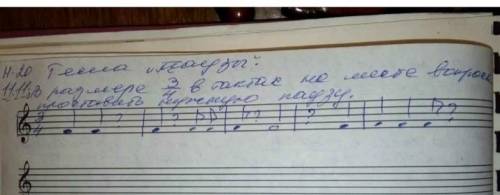 Н-20 Тема "паузы".
В размере 3/4 в тактах на месте вопроса
проставить нужную паузу.
3/4 ? ? ? ? ? ? ?